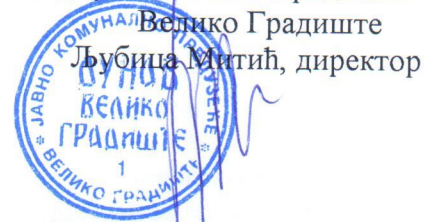 Велико Градиште
Љубица Митић, директор
ЈАВНО КОМУНАЛНО ПРЕДУЗЕЋЕ
ДУНАВ
ВЕЛИКО
ГРАДИШТЕ
1
ВЕЛИКО ГРАДИШТЕ